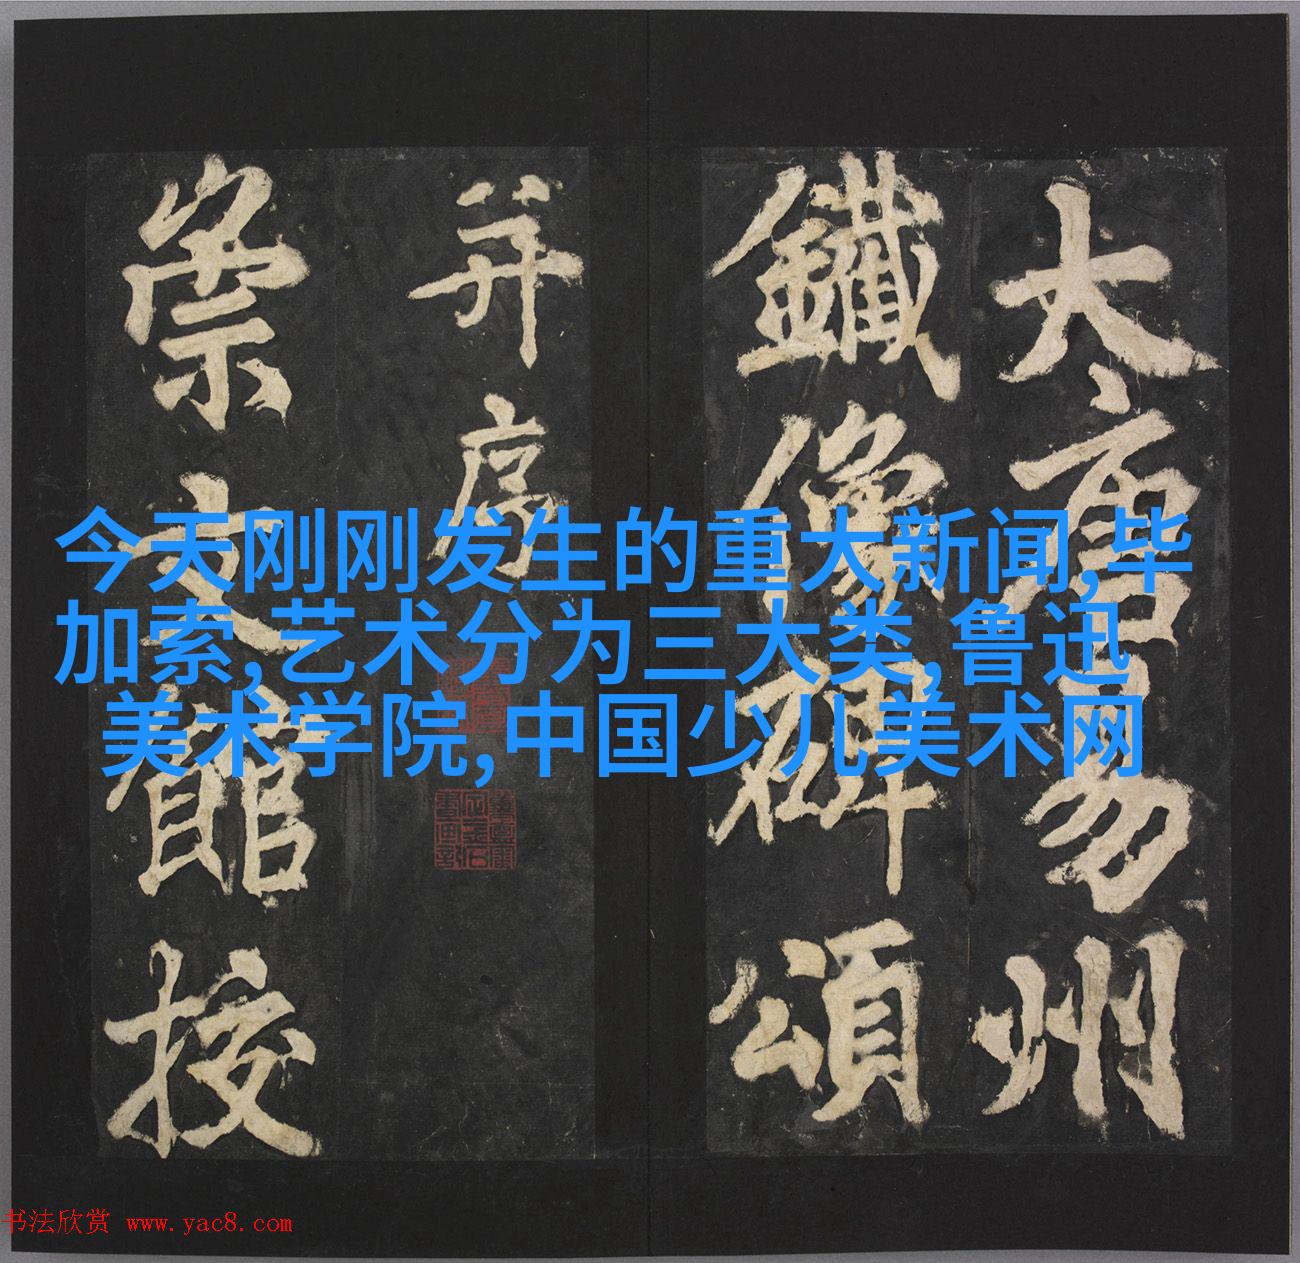 大唐易州
鐵像碑頌
并序
崇文館挍
今天刚刚发生的重大新闻,毕
加索,艺术分为三大类,鲁迅
美术学院,中国少儿美术网
书法欣赏 www.yac8.com